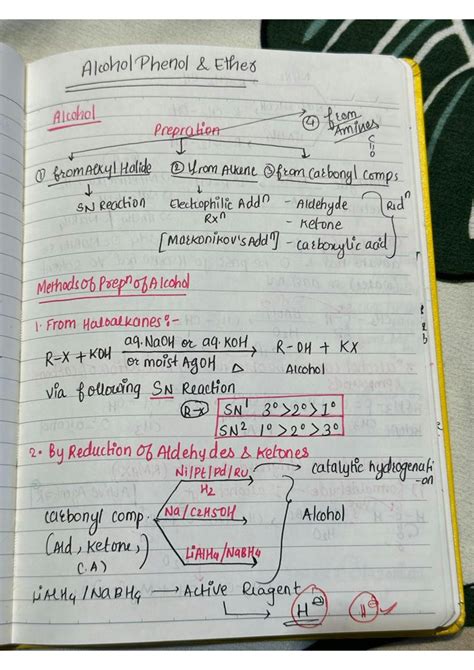 Alcohol Phenol & Ether
Alcohol
Prepration
④ from Amines
① from Alkyl Halide ② from Alkene ③ from Carbonyl comps
C=O
SN Reaction Electophilic Addⁿ - Aldehyde Redⁿ
Rxⁿ - Ketone
[Markonikov's Addⁿ] - carboxylic acid
Methods of Prepⁿ of Alcohol
1. From Haloalkanes :-
R-X + KOH aq. NaOH or aq. KOH → R-OH + KX
or moist AgOH △ Alcohol
via following SN Reaction
R-X SN¹ 3° > 2° > 1°
SN² 1° > 2° > 3°
2. By Reduction of Aldehydes & Ketones
Ni/Pt/Pd/Ru → catalytic hydrogenati-on
H₂
Carbonyl comp. Na/C₂H₅OH Alcohol
(Ald, Ketone,
C.A) LiAlH₄/NaBH₄
LiAlH₄/NaBH₄ → Active Reagent
H⊖ H⊖ ✓